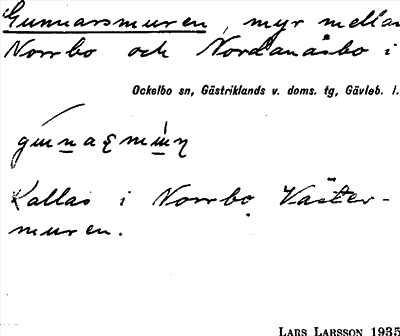 Gunnarsmuren, myr mellan
Norrbo och Nordanåsbo i
Ockelbo sn, Gästriklands v. doms. tg, Gävleb. l.
Kallas i Norrbo Väster-
muren.
LARS LARSSON 1935